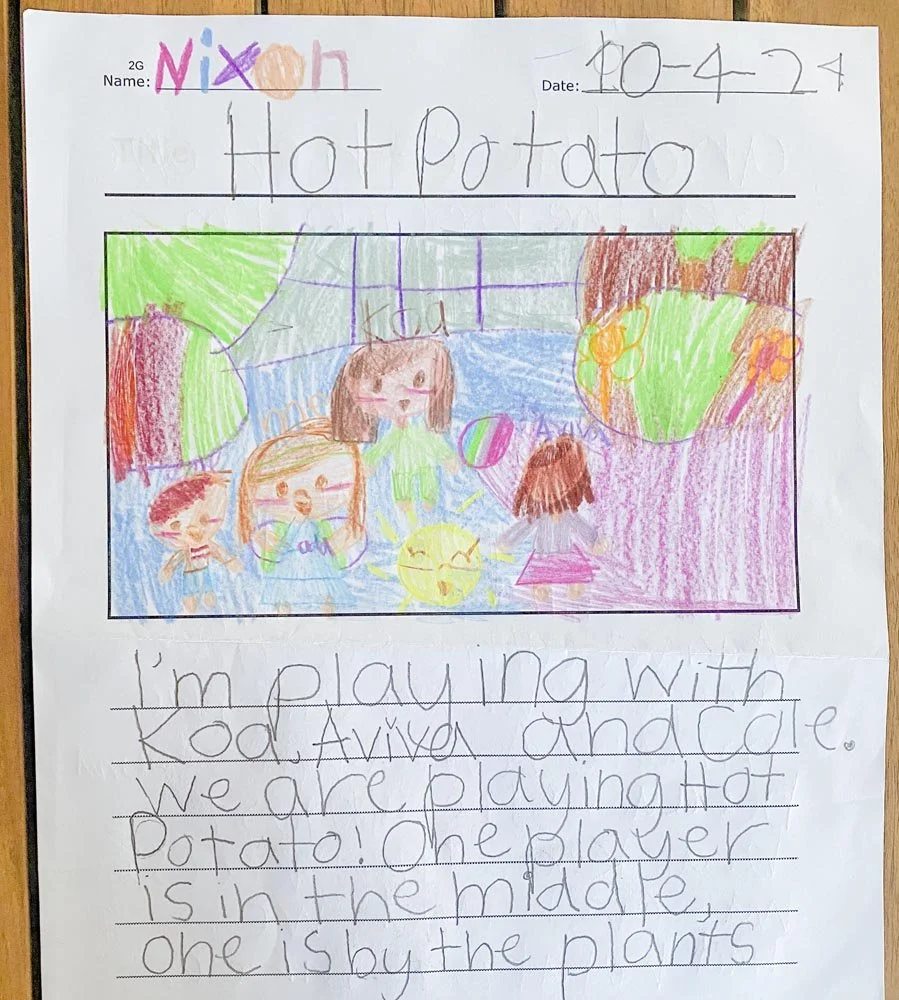 2G
Name: Nixon
Date: 10-4-24
Title
Hot Potato
Koa
me
Aviva
I'm playing with
Koa, Aviva and Cole.
We are playing Hot
Potato! One player
is in the middle,
one is by the plants